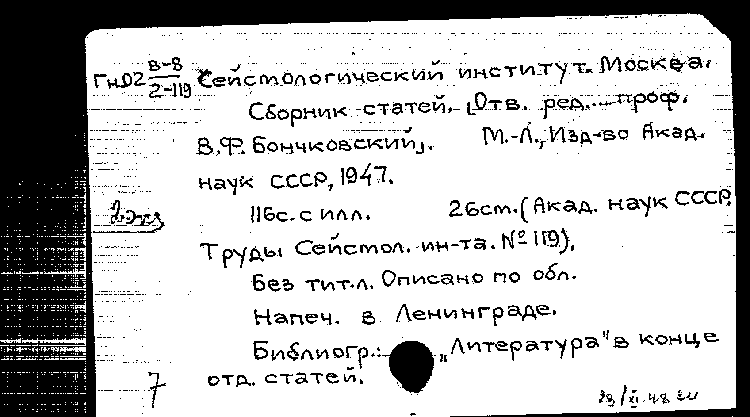 ГнД2 В-8/2-119 Сейсмологический институт. Москва.
Сборник статей. [Отв. ред... проф.
В.Ф. Бончковский]. М.-Л., Изд-во Акад.
наук СССР, 1947.
2 экз
116с. с илл. 26см. (Акад. наук СССР.
Труды Сейсмол. ин-та. № 119).
Без тит.л. Описано по обл.
Напеч. в Ленинграде.
Библиогр.: „Литература" в конце
отд. статей.
7